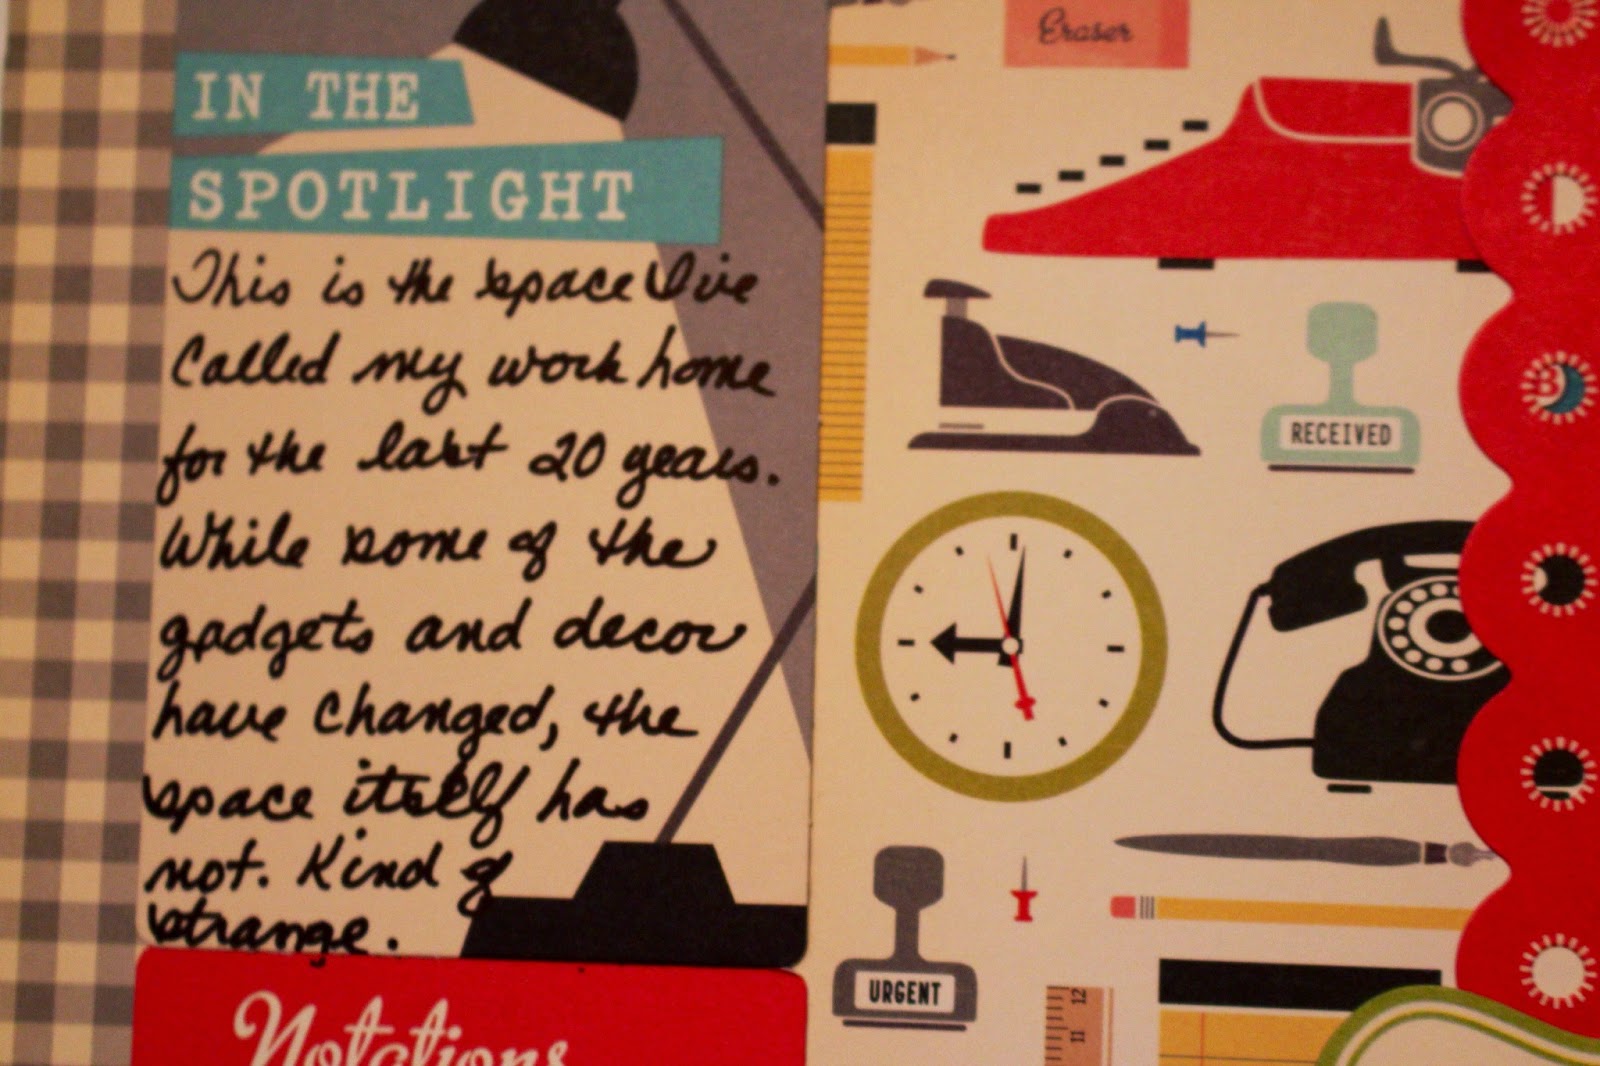 IN THE
SPOTLIGHT
This is the space I've
Called my work home
for the last 20 years.
While some of the
gadgets and decor
have changed, the
space itself has
not. Kind of
strange.
Notations
Eraser
RECEIVED
URGENT
12
11
B